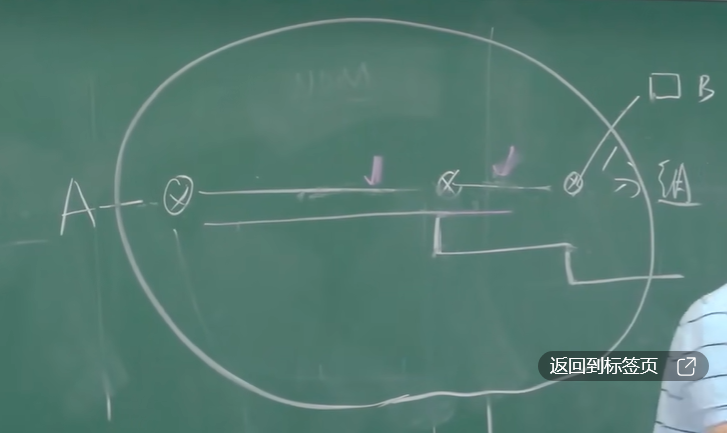 B
A
分组
返回到标签页